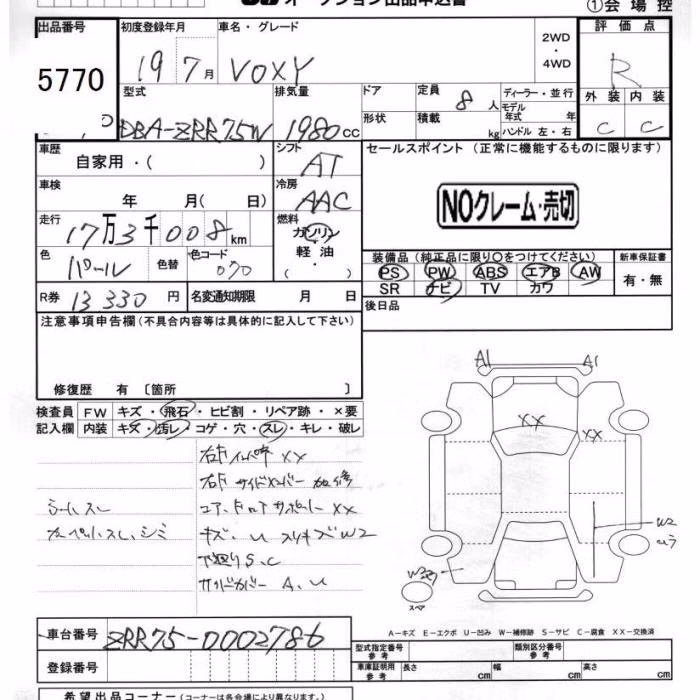 オークション出品申込書
①会場控
出品番号 初度登録年月 車名・グレード 2WD・4WD 評価点
5770 19 7月 VOXY R
型式 排気量 ドア 定員 8人 ディーラー・並行 外装 内装
DBA-ZRR75W 1980cc 形状 積載 kg モデル年式 年 ハンドル 左・右 C C
車歴 自家用・( ) シフト AT セールスポイント (正常に機能するものに限ります)
車検 年 月( 日) 冷房 AAC NOクレーム・売切
走行 17万3千008km 燃料 ガソリン 軽油 ・( )
色 パール 色替 色コード 070 装備品 (純正品に限り○をつけてください) 新車保証書
PS PW ABS エアB AW 有・無
SR ナビ TV カワ
R券 13330円 名変通知期限 月 日 後日品
注意事項申告欄 (不具合内容等は具体的に記入して下さい)
修復歴 有 〔箇所 〕
検査員記入欄 FW キズ・飛石・ヒビ割・リペア跡・×要
内装 キズ・汚レ・コゲ・穴・スレ・キレ・破レ
A1 A1
XX XX
右F インパネ XX
右F サイドメンバー 修
シートスレ コア、ドロア サポート XX
カーペットスレ、シミ キズ・U スリキズW2
下廻りS、C
サイドカバー A、U
W2
スペア
A-キズ E-エクボ U-凹み W-補修跡 S-サビ C-腐食 XX-交換済
車台番号 ZRR75-0002786
登録番号
型式指定番号 参考 類別区分番号 参考
車庫証明用 参考 長さ cm 幅 cm 高さ cm
希望出品コーナー (コーナーは各会場により異なります。)